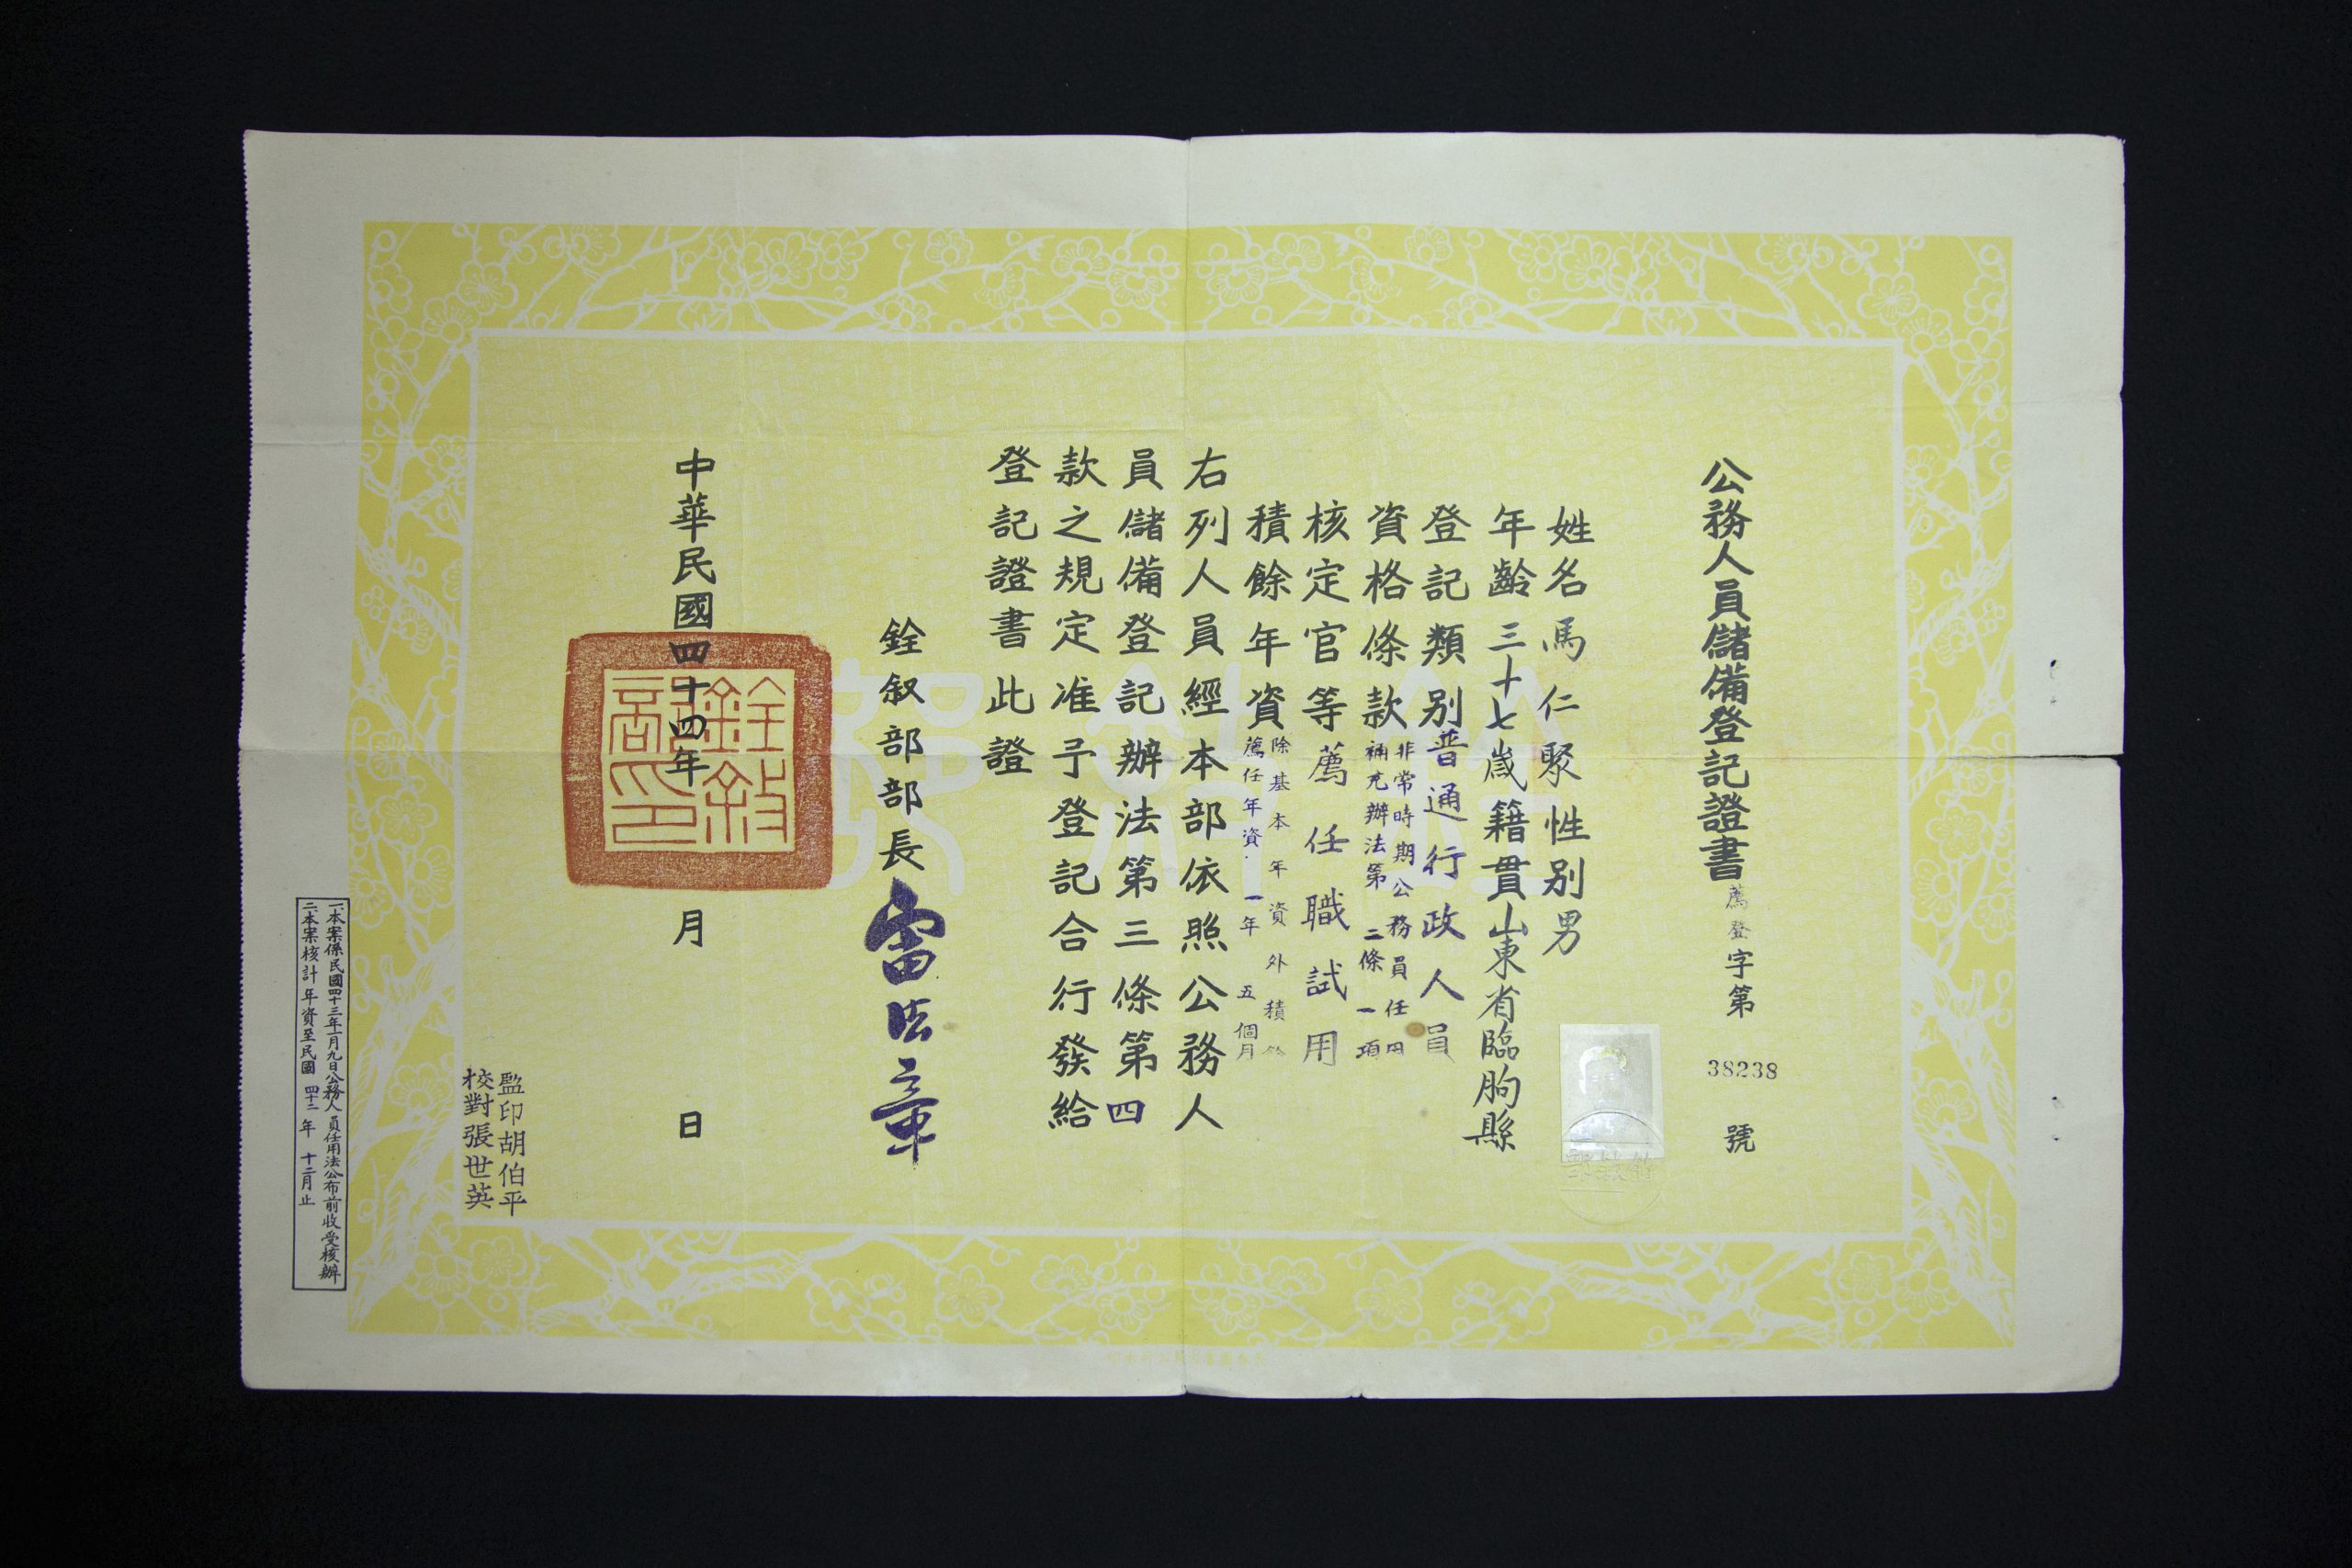 公務人員儲備登記證書
薦登字第38238號
姓名馬仁聚性別男
年齡三十七歲籍貫山東省臨朐縣
登記類別普通行政人員
資格條款非常時期公務員任用
補充辦法第二條一項
核定官等薦任職試用
積餘年資除基本年資外積餘
薦任年資一年五個月
右列人員經本部依照公務人
員儲備登記辦法第三條第四
款之規定准予登記合行發給
登記證書此證
銓敘部部長雷法章
中華民國四十四年 月 日
銓敘部印
監印胡伯平
校對張世英
一本案係民國四十三年一月九日公務人員任用法公布前收受核辦
二本案核計年資至民國四十二年十二月止